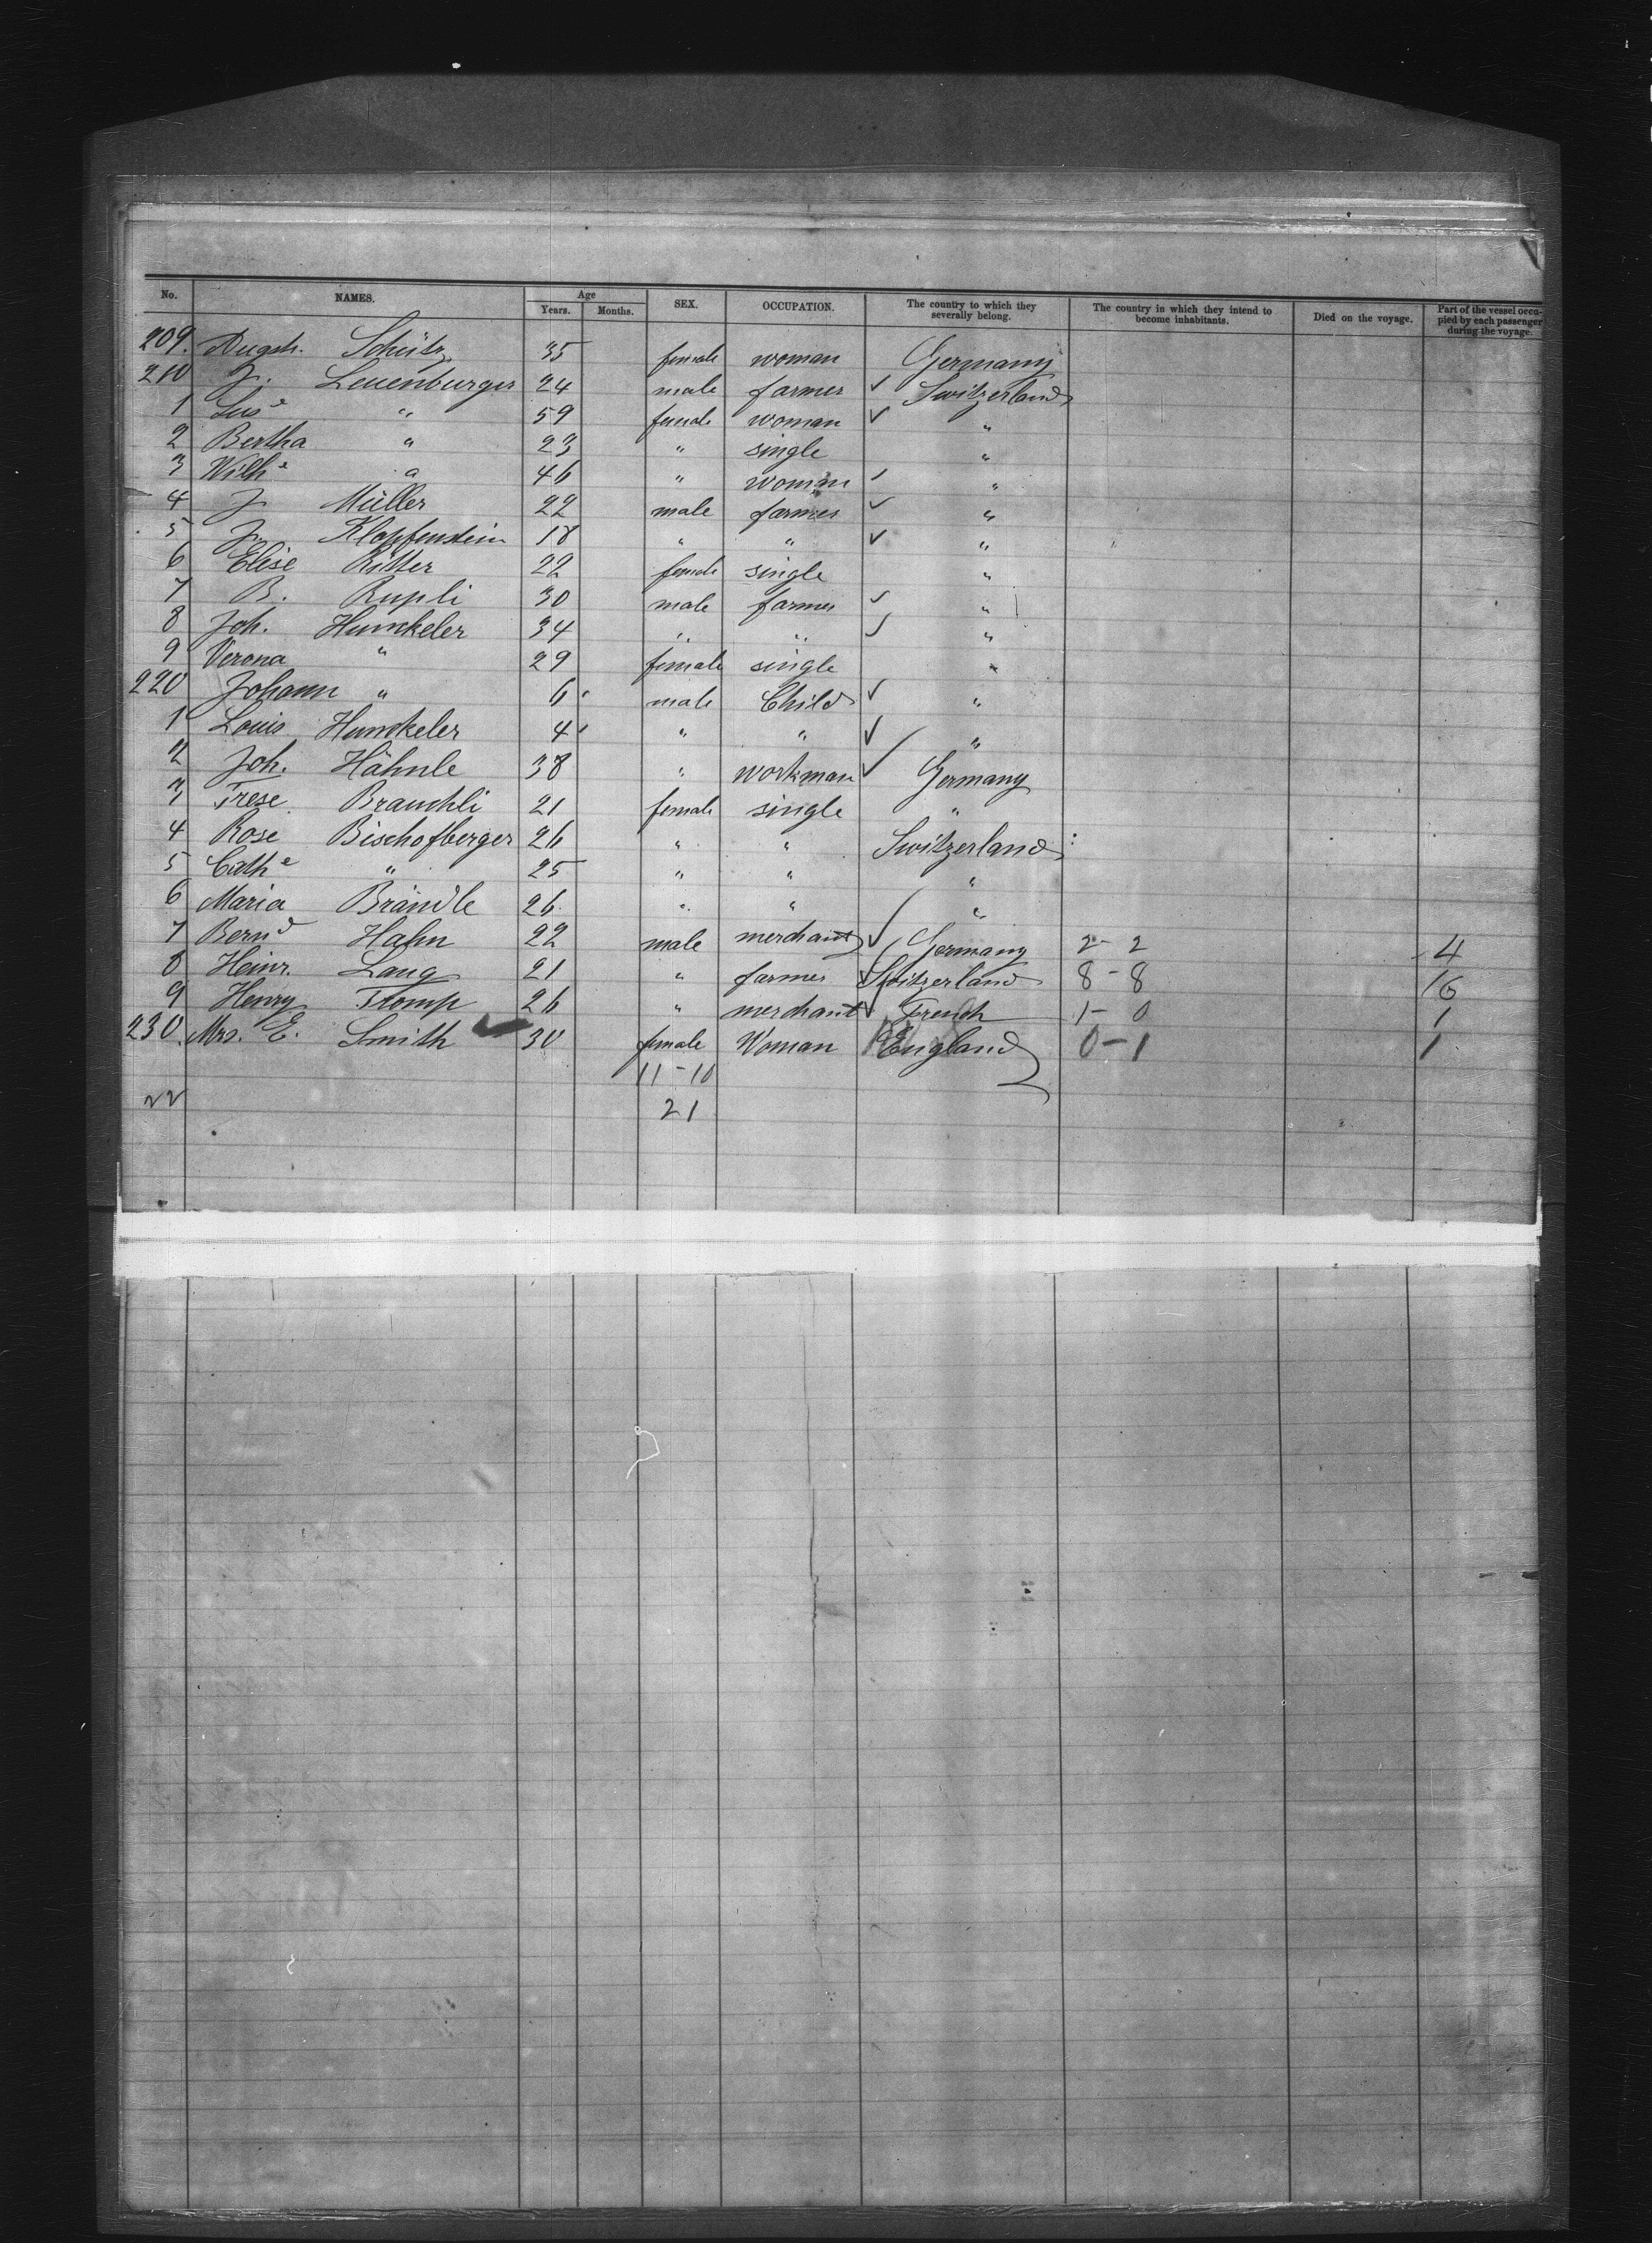 No. NAMES. Age Years. Months. SEX. OCCUPATION. The country to which they severally belong. The country in which they intend to become inhabitants. Died on the voyage. Part of the vessel occupied by each passenger during the voyage.
209. Augst. Schütz 35 female woman Germany
210 J. Leuenburger 24 male farmer ✓ Switzerland
1 Luse " 59 female woman ✓ "
2 Bertha " 23 " single "
3 Wilhe " 46 " woman ✓ "
4 J Müller 22 male farmer ✓ "
5 J. Klopfenstein 18 " " ✓ "
6 Elise Ritter 22 female single "
7 B. Rupli 30 male farmer ✓ "
8 Joh. Hunkeler 34 " " ✓ "
9 Verona " 29 female single "
220 Johann " 6 male Child ✓ "
1 Louis Hunkeler 4 " " ✓ "
2 Joh. Hähnle 38 " workman ✓ Germany
3 Trese Brauchli 21 female single "
4 Rose Bischofberger 26 " " Switzerland
5 Cathe " 25 " " "
6 Maria Brändle 26 " " "
7 Bernd Hahn 22 male merchant ✓ Germany 2-2 4
8 Heinr. Lang 21 " farmer ✓ Switzerland 8-8 16
9 Henry Stomp 26 " merchant ✓ French 1-0 1
230 Mrs. E. Smith ✓ 30 female Woman England 0-1 1
11-10
22 21